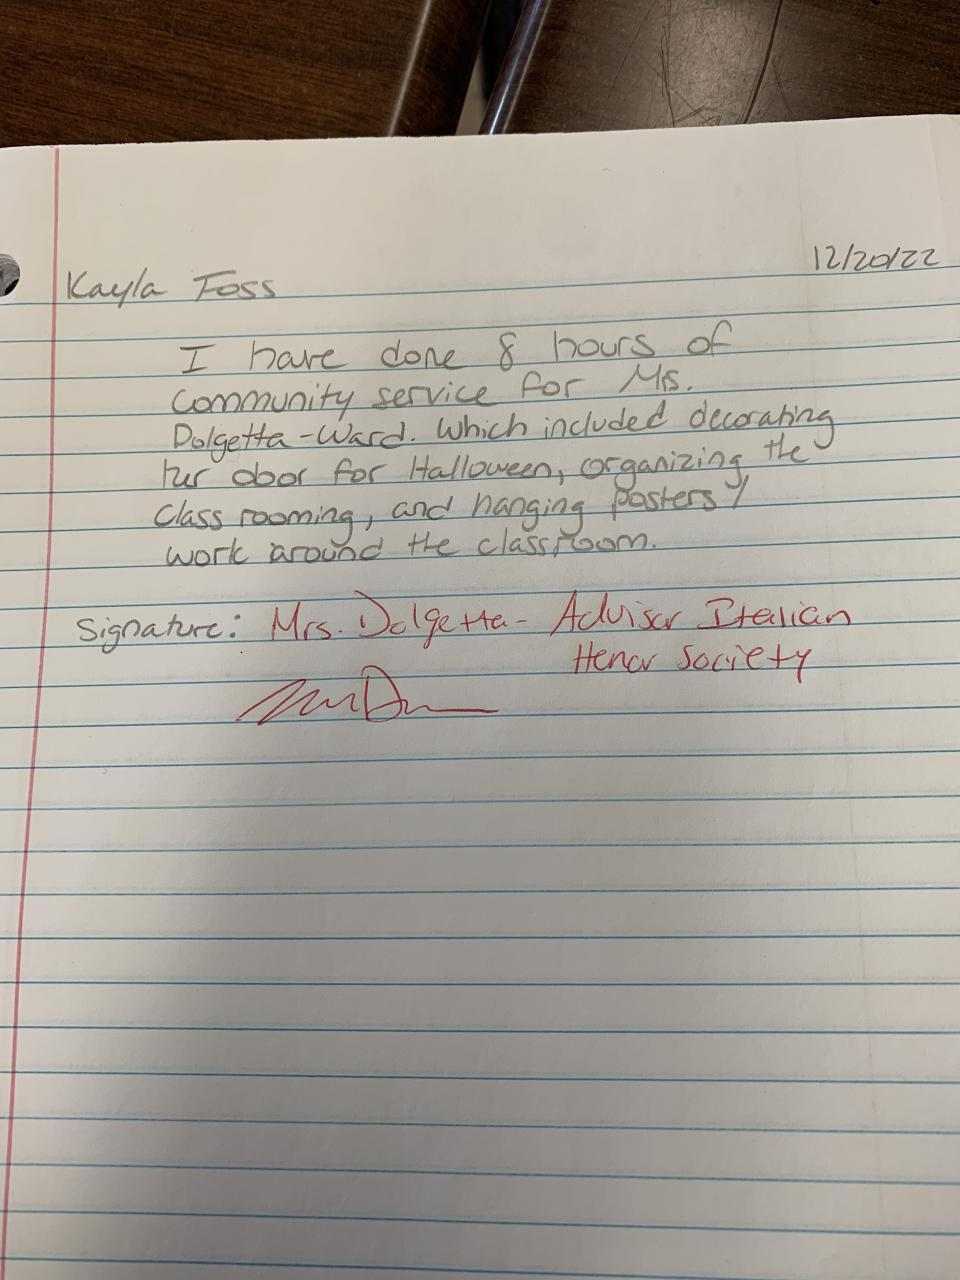 12/20/22
Kayla Foss
I have done 8 hours of
community service for Mrs.
Dolgetta-Ward. Which included decorating
her door for Halloween, organizing the
class rooming, and hanging posters/
work around the classroom.
Signature: Mrs. Dolgetta- Advisor Italian
Honor Society